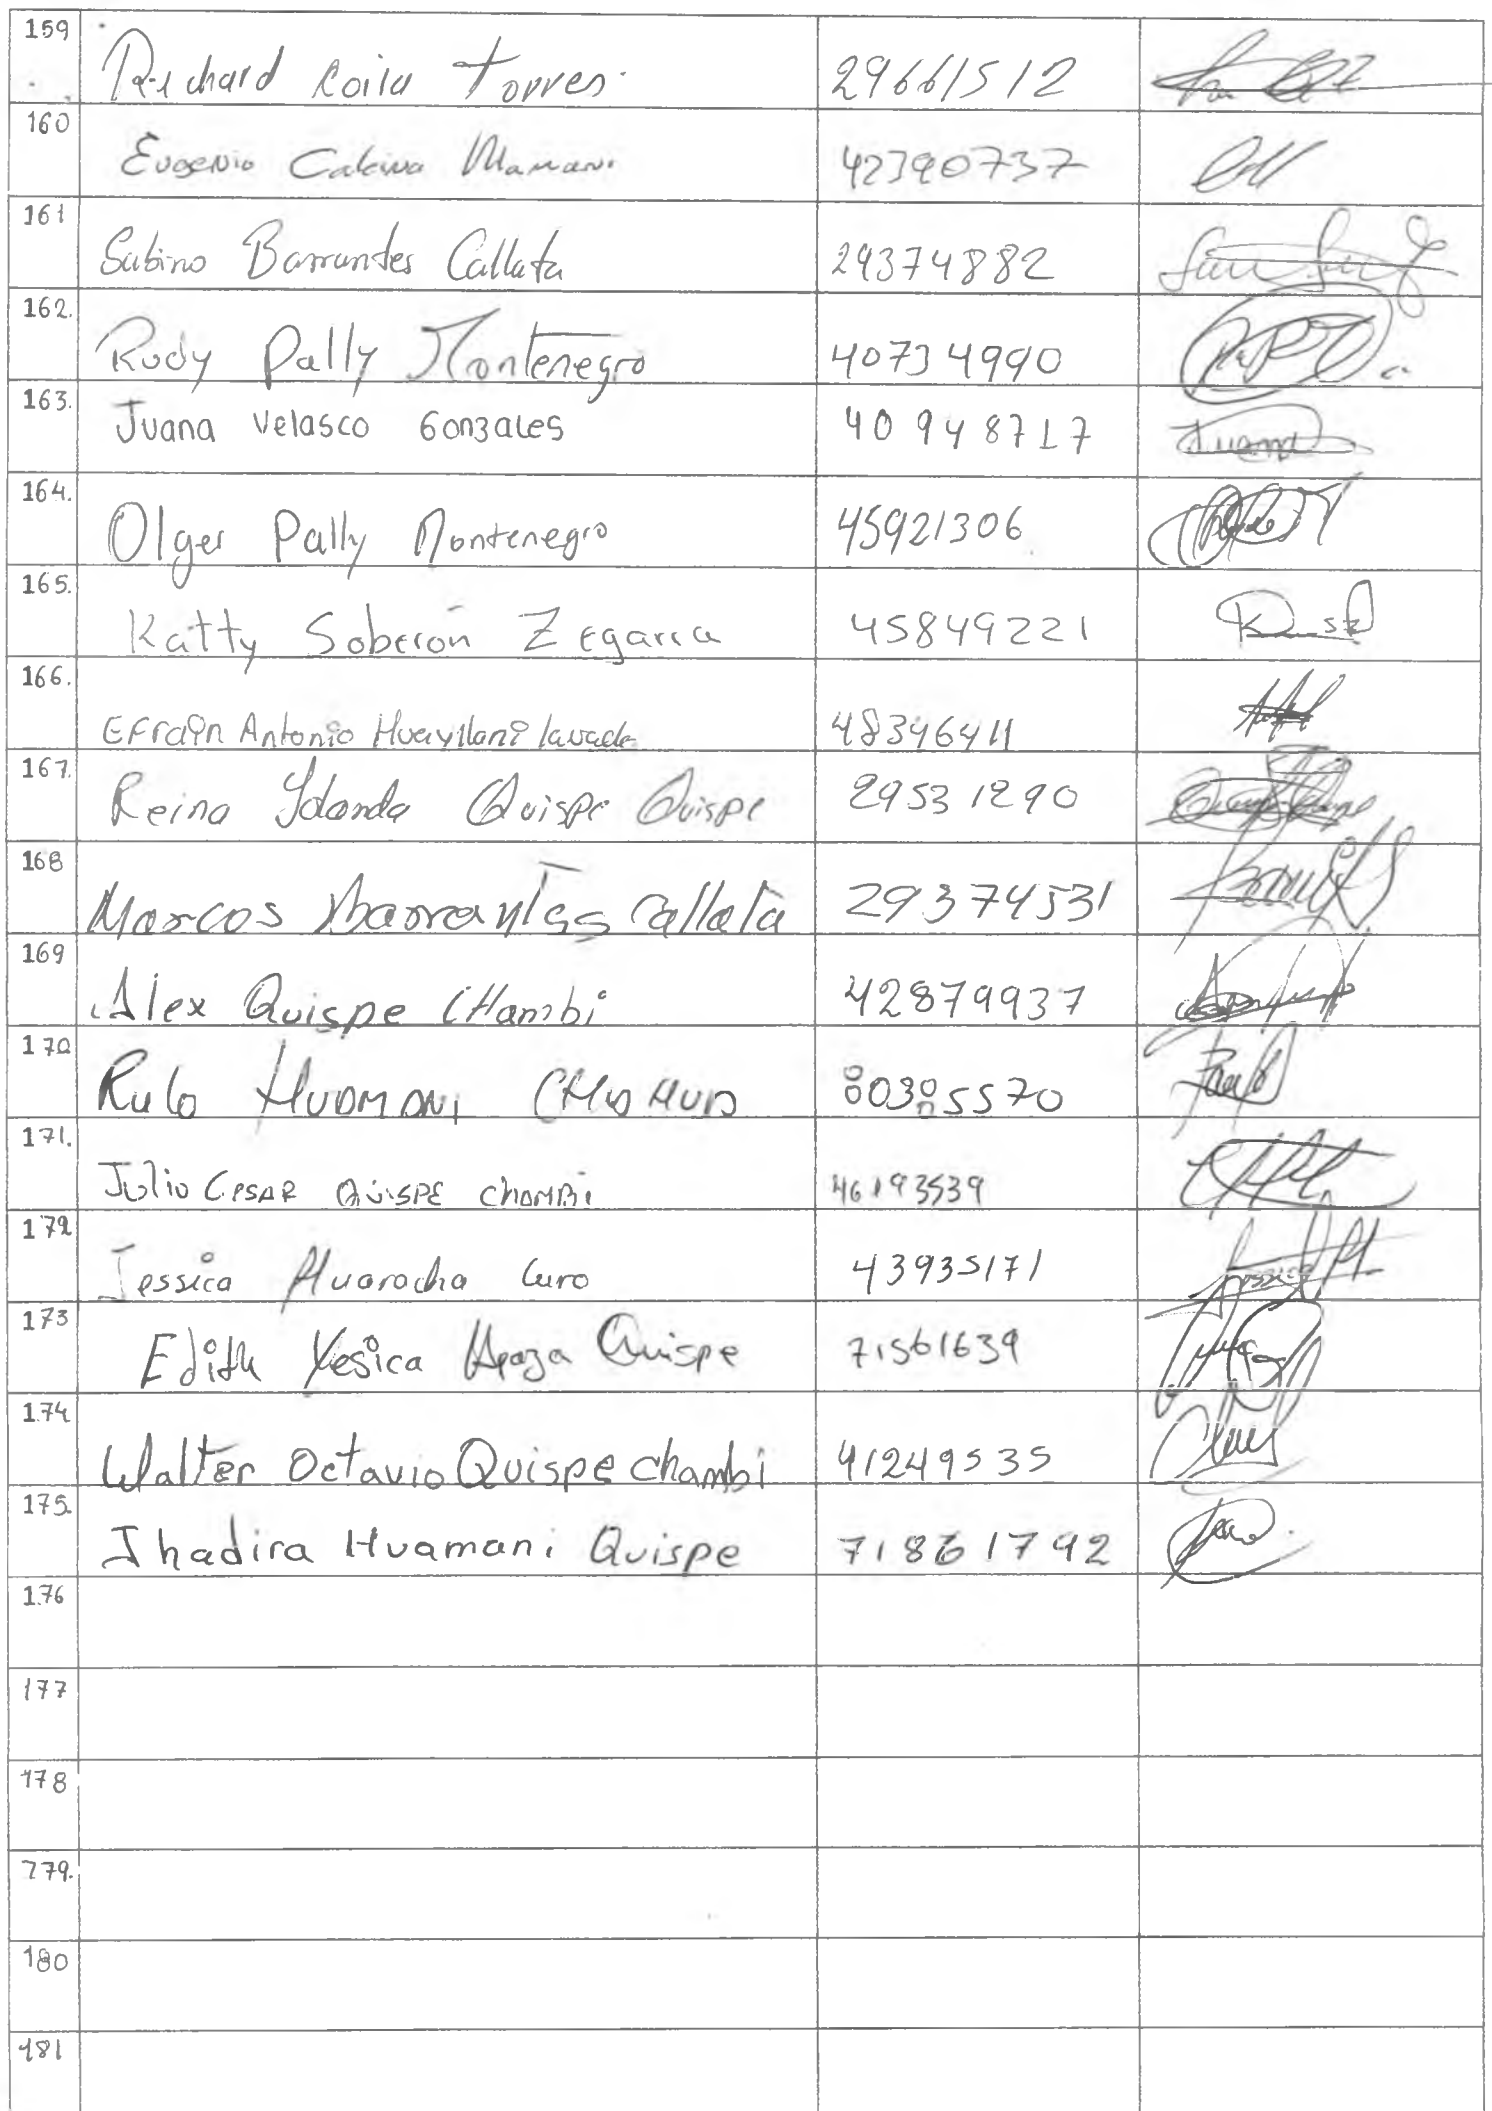 159 Richard Coila Torres. 29661512
160 Eugenio Calcina Mamani 42390737
161 Sabino Barrantes Callata 29374882
162. Rudy Pally Montenegro 40734990
163. Juana Velasco Gonzales 40948717 Juana
164. Olger Pally Montenegro 45921306
165. Katty Soberón Zegarra 45849221
166. Efraín Antonio Huayllani lavado 48346411
167. Reina Yolanda Quispe Quispe 29531290
168 Marcos Barrantes Callata 29374531
169 Alex Quispe CHambi 42879937
170 Rulo HUAMANI 80305570
171. Julio CESAR QUISPE CHAMBI 46193539
172 Jessica Huaracha Curo 43935171
173 Edith Yesica Apaza Quispe 71561639
174 Walter Octavio Quispe chambi 41249535
175. Jhadira Huamani Quispe 71861792
176
177
178
179.
180
181